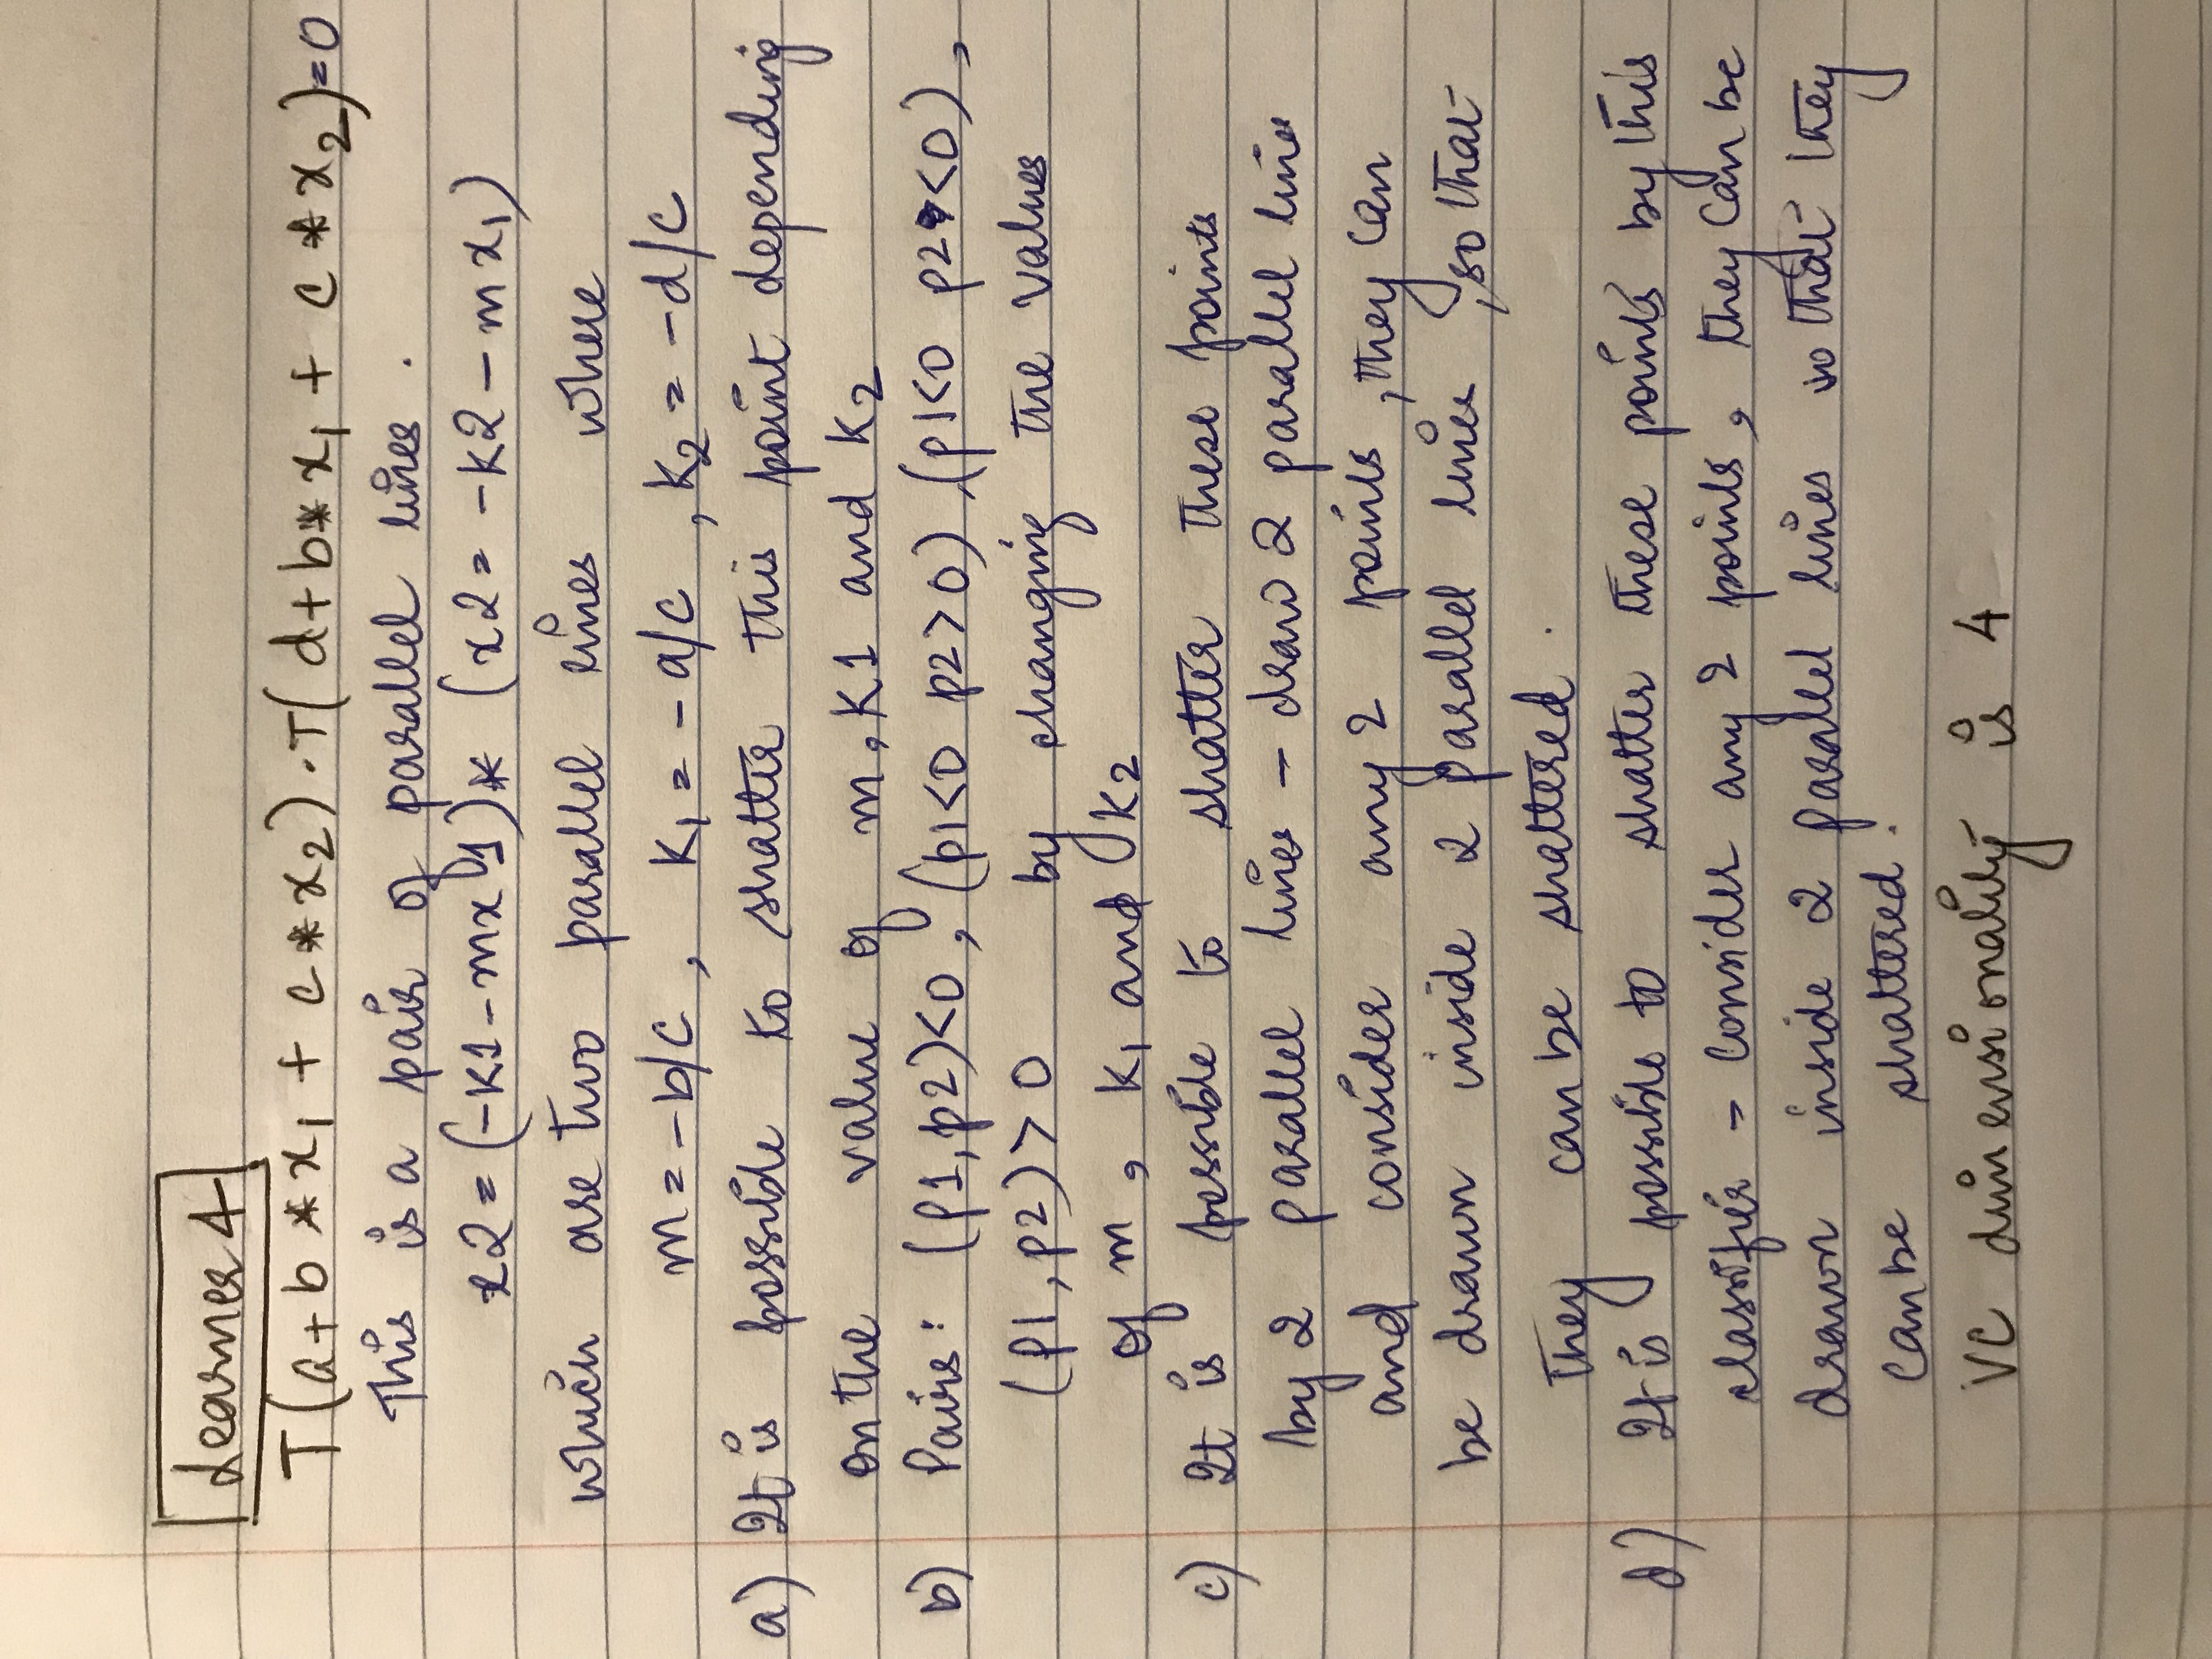 Learner 4
T(a+b*x₁ + c*x₂).T(d+b*x₁ + c*x₂)=0
This is a pair of parallel lines.
x2=(-K1-mx1)* (x2=-K2-mx₁)
which are two parallel lines where
m=-b/c, K₁=-a/c, K₂=-d/c
a) It is possible to shatter this point depending
on the value of m, K1 and K2
b) Pairs: (p1,p2)<0, (p1<0 p2>0), (p1<0 p2<0),
(p1,p2)>0 by changing the values
of m, K₁ and K2
c) It is possible to shatter these points
by 2 parallel lines - draw 2 parallel line
and consider any 2 points, they can
be drawn inside 2 parallel lines, so that
they can be shattered.
d) It is possible to shatter these points by this
classifier - Consider any 2 points, they can be
drawn inside 2 parallel lines so that they
can be shattered.
VC dimensionality is 4